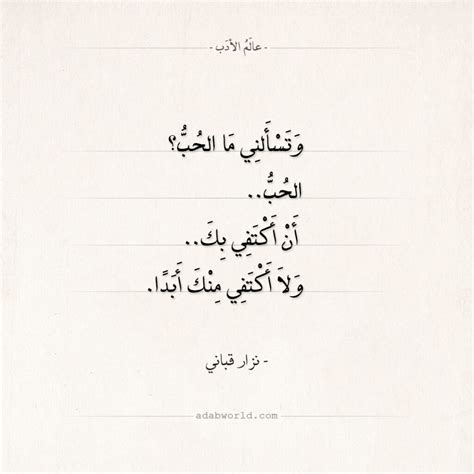 - عالَمُ الأدَب -
وَتَسْأَلنِي مَا الحُبُّ؟
الحُبُّ..
أَنْ أَكْتَفِي بِكَ..
وَلاَ أَكْتَفِي مِنْكَ أَبَدًا.
- نزار قباني
adabworld.com